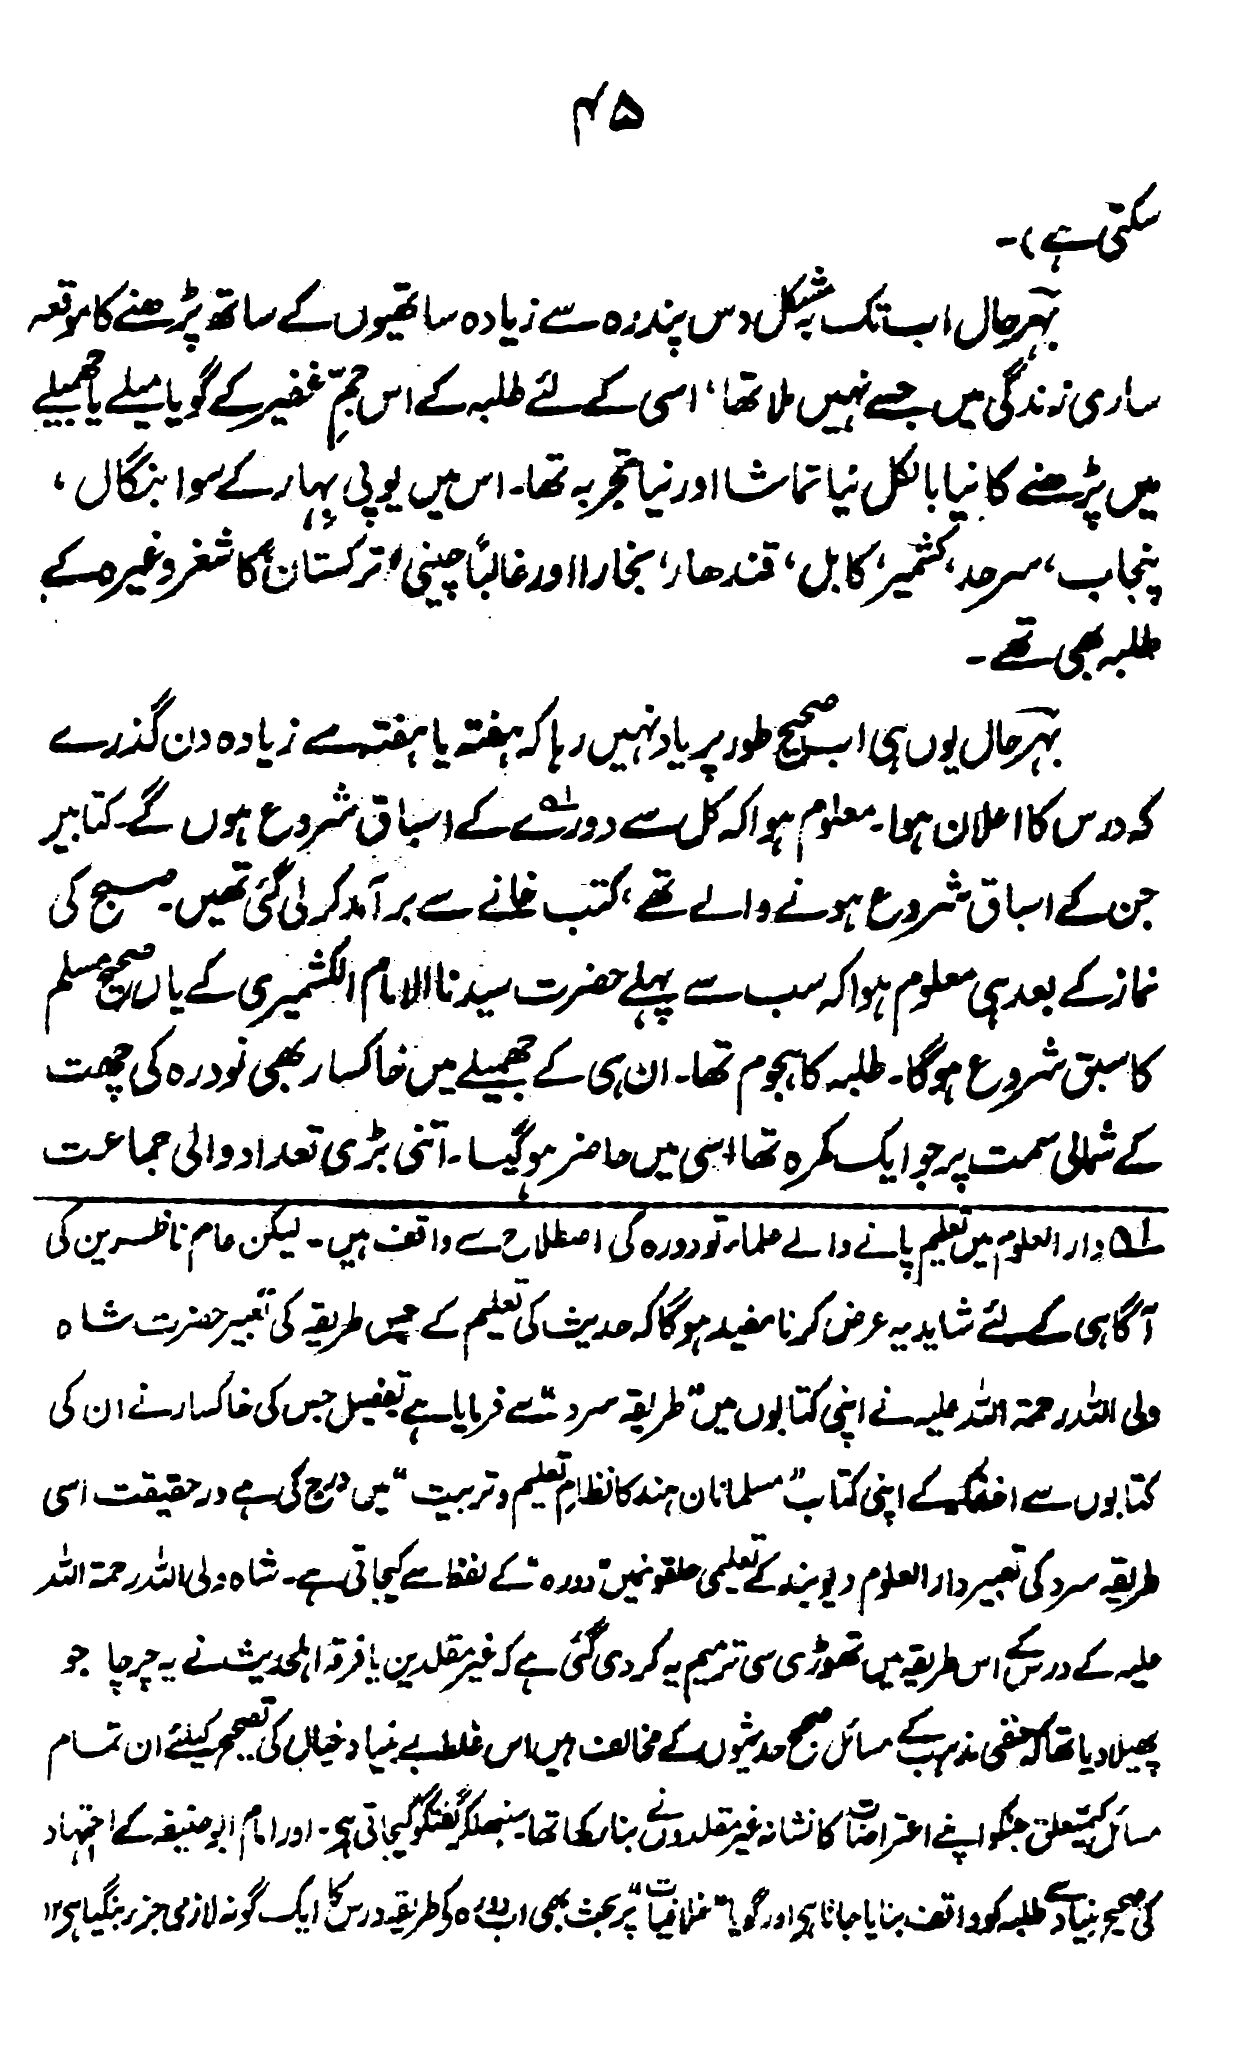 ۴۵
سکتی ہے)۔
بہرحال اب تک بہ مشکل دس پندرہ سے زیادہ ساتھیوں کے ساتھ پڑھنے کا موقعہ
ساری زندگی میں جسے نہیں ملا تھا، اسی کے لئے طلبہ کے اس جمِّ غفیر کے گویا میلے یا جھمیلے
میں پڑھنے کا نیا بالکل نیا تماشا اور نیا تجربہ تھا۔ اس میں یوپی بہار کے سوا بنگال،
پنجاب، سرحد، کشمیر، کابل، قندھار، بخارا اور غالباً چینی ترکستان، کاشغر وغیرہ کے
طلبہ بھی تھے۔
بہرحال یوں ہی اب صحیح طور پر یاد نہیں رہا کہ ہفتہ یا ہفتہ سے زیادہ دن گذرے
کہ درس کا اعلان ہوا۔ معلوم ہوا کہ کل سے دورے ۵۱ کے اسباق شروع ہوں گے۔ کتابیں
جن کے اسباق شروع ہونے والے تھے، کتب خانے سے برآمد کرلی گئی تھیں۔ صبح کی
نماز کے بعد ہی معلوم ہوا کہ سب سے پہلے حضرت سیدنا الامام الکشمیری کے یاں صحیح مسلم
کا سبق شروع ہوگا۔ طلبہ کا ہجوم تھا۔ ان ہی کے جھمیلے میں خاکسار بھی نودرہ کی چھت
کے شمالی سمت پر جو ایک کمرہ تھا اسی میں حاضر ہوگیا۔ اتنی بڑی تعداد والی جماعت
۵۱ دار العلوم میں تعلیم پانے والے علماء تو دورہ کی اصطلاح سے واقف ہیں۔ لیکن عام ناظرین کی
آگاہی کے لئے شاید یہ عرض کرنا مفید ہوگا کہ حدیث کی تعلیم کے جس طریقہ کی تعبیر حضرت شاہ
ولی اللہ رحمۃ اللہ علیہ نے اپنی کتابوں میں "طریقہ سرد" سے فرمایا ہے تفصیل جس کی خاکسار نے ان کی
کتابوں سے اخذ کرکے اپنی کتاب "مسلمانان ہند کا نظامِ تعلیم و تربیت" میں درج کی ہے درحقیقت اسی
طریقہ سرد کی تعبیر دار العلوم دیوبند کے تعلیمی حلقوں میں "دورہ" کے لفظ سے کیجاتی ہے۔ شاہ ولی اللہ رحمۃ اللہ
علیہ کے درس کے اس طریقہ میں تھوڑی سی ترمیم یہ کردی گئی ہے کہ غیر مقلدین یا فرقہ اہلحدیث نے یہ چرچا جو
پھیلا دیا تھا کہ حنفی مذہب کے مسائل صحیح حدیثوں کے مخالف ہیں اس غلط بے بنیاد خیال کی تصحیح کیلئے ان تمام
مسائل کے متعلق جنکو اپنے اعتراضات کا نشانہ غیر مقلدوں نے بنا رکھا تھا۔ سنبھلکر گفتگو کیجاتی ہے۔ اور امام ابوحنیفہ کے اجتہاد
کی صحیح بنیاد سے طلبہ کو واقف بنایا جاتا ہے اور گویا "خلافیات" پر بحث بھی اب دورہ کی طریقہ درس کا ایک گونہ لازمی جز بنگیا ہے ۱۲